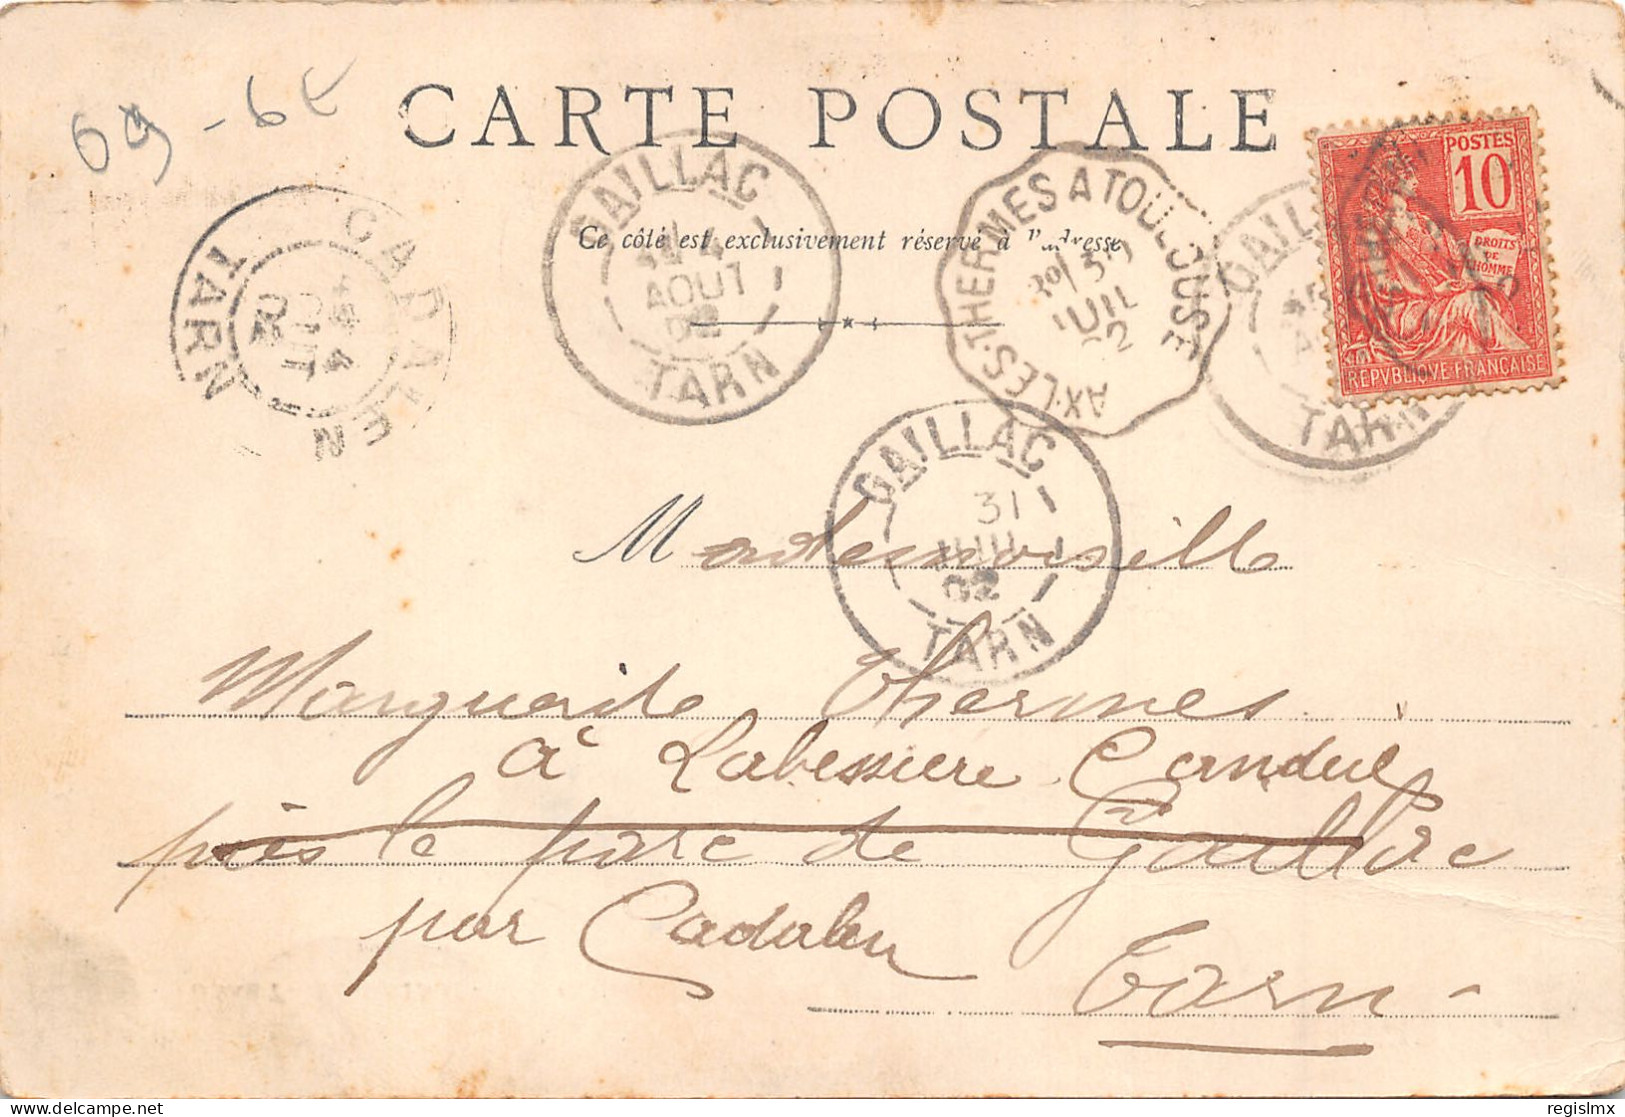 69 - 6€
CARTE POSTALE
Ce côté est exclusivement réservé à l'adresse
GAILLAC
4
AOUT
02
TARN
CADALEN
4
AOUT
02
TARN
AX-LES-THERMES A TOULOUSE
JUIL
02
GAILLAC
TARN
POSTES
10
DROITS
DE
L'HOMME
REPVBLIQVE FRANÇAISE
GAILLAC
31
JUIL
02
TARN
Mademoiselle
Marguerite Thermes
à Labessiere Candeil
près le parc de Gaillac
par Cadalen
Tarn
regislmx